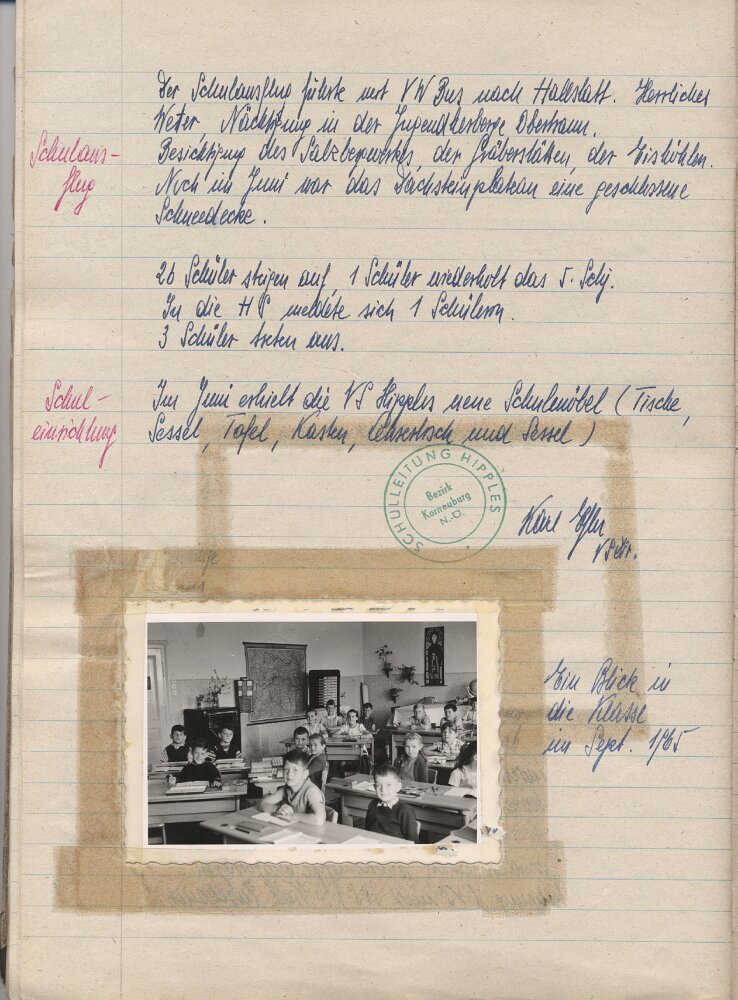 Der Schulausflug führte mit VW Bus nach Hallstatt. Herrliches
Wetter, Nächtigung in der Jugendherberge Obertraun.
Schulaus-
flug
Besichtigung des Salzbergwerkes, der Gräberstätten, der Eishöhlen.
Noch im Juni war das Dachsteinplateau eine geschlossene
Schneedecke.
26 Schüler steigen auf, 1 Schüler wiederholt das 5. Schj.
In die HS meldete sich 1 Schülerin.
3 Schüler treten aus.
Schul-
einrichtung
Im Juni erhielt die VS Hipples neue Schulmöbel (Tische,
Sessel, Tafel, Kasten, Lehrertisch und Sessel)
SCHULLEITUNG HIPPLES
Bezirk
Korneuburg
N.-Ö.
Karl
Ein Blick in
die Klasse
im Sept. 1965